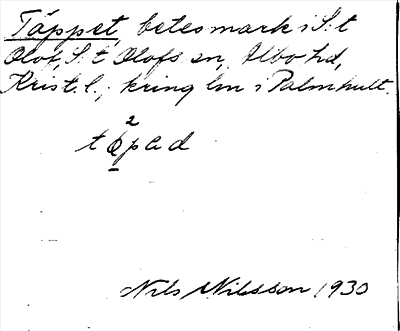 Täppet, betesmark i S:t
Olof, S:t Olofs sn, Albo hd,
Krist. l., kring lm i Palmhult.
2
töpad
Nils Nilsson 1930